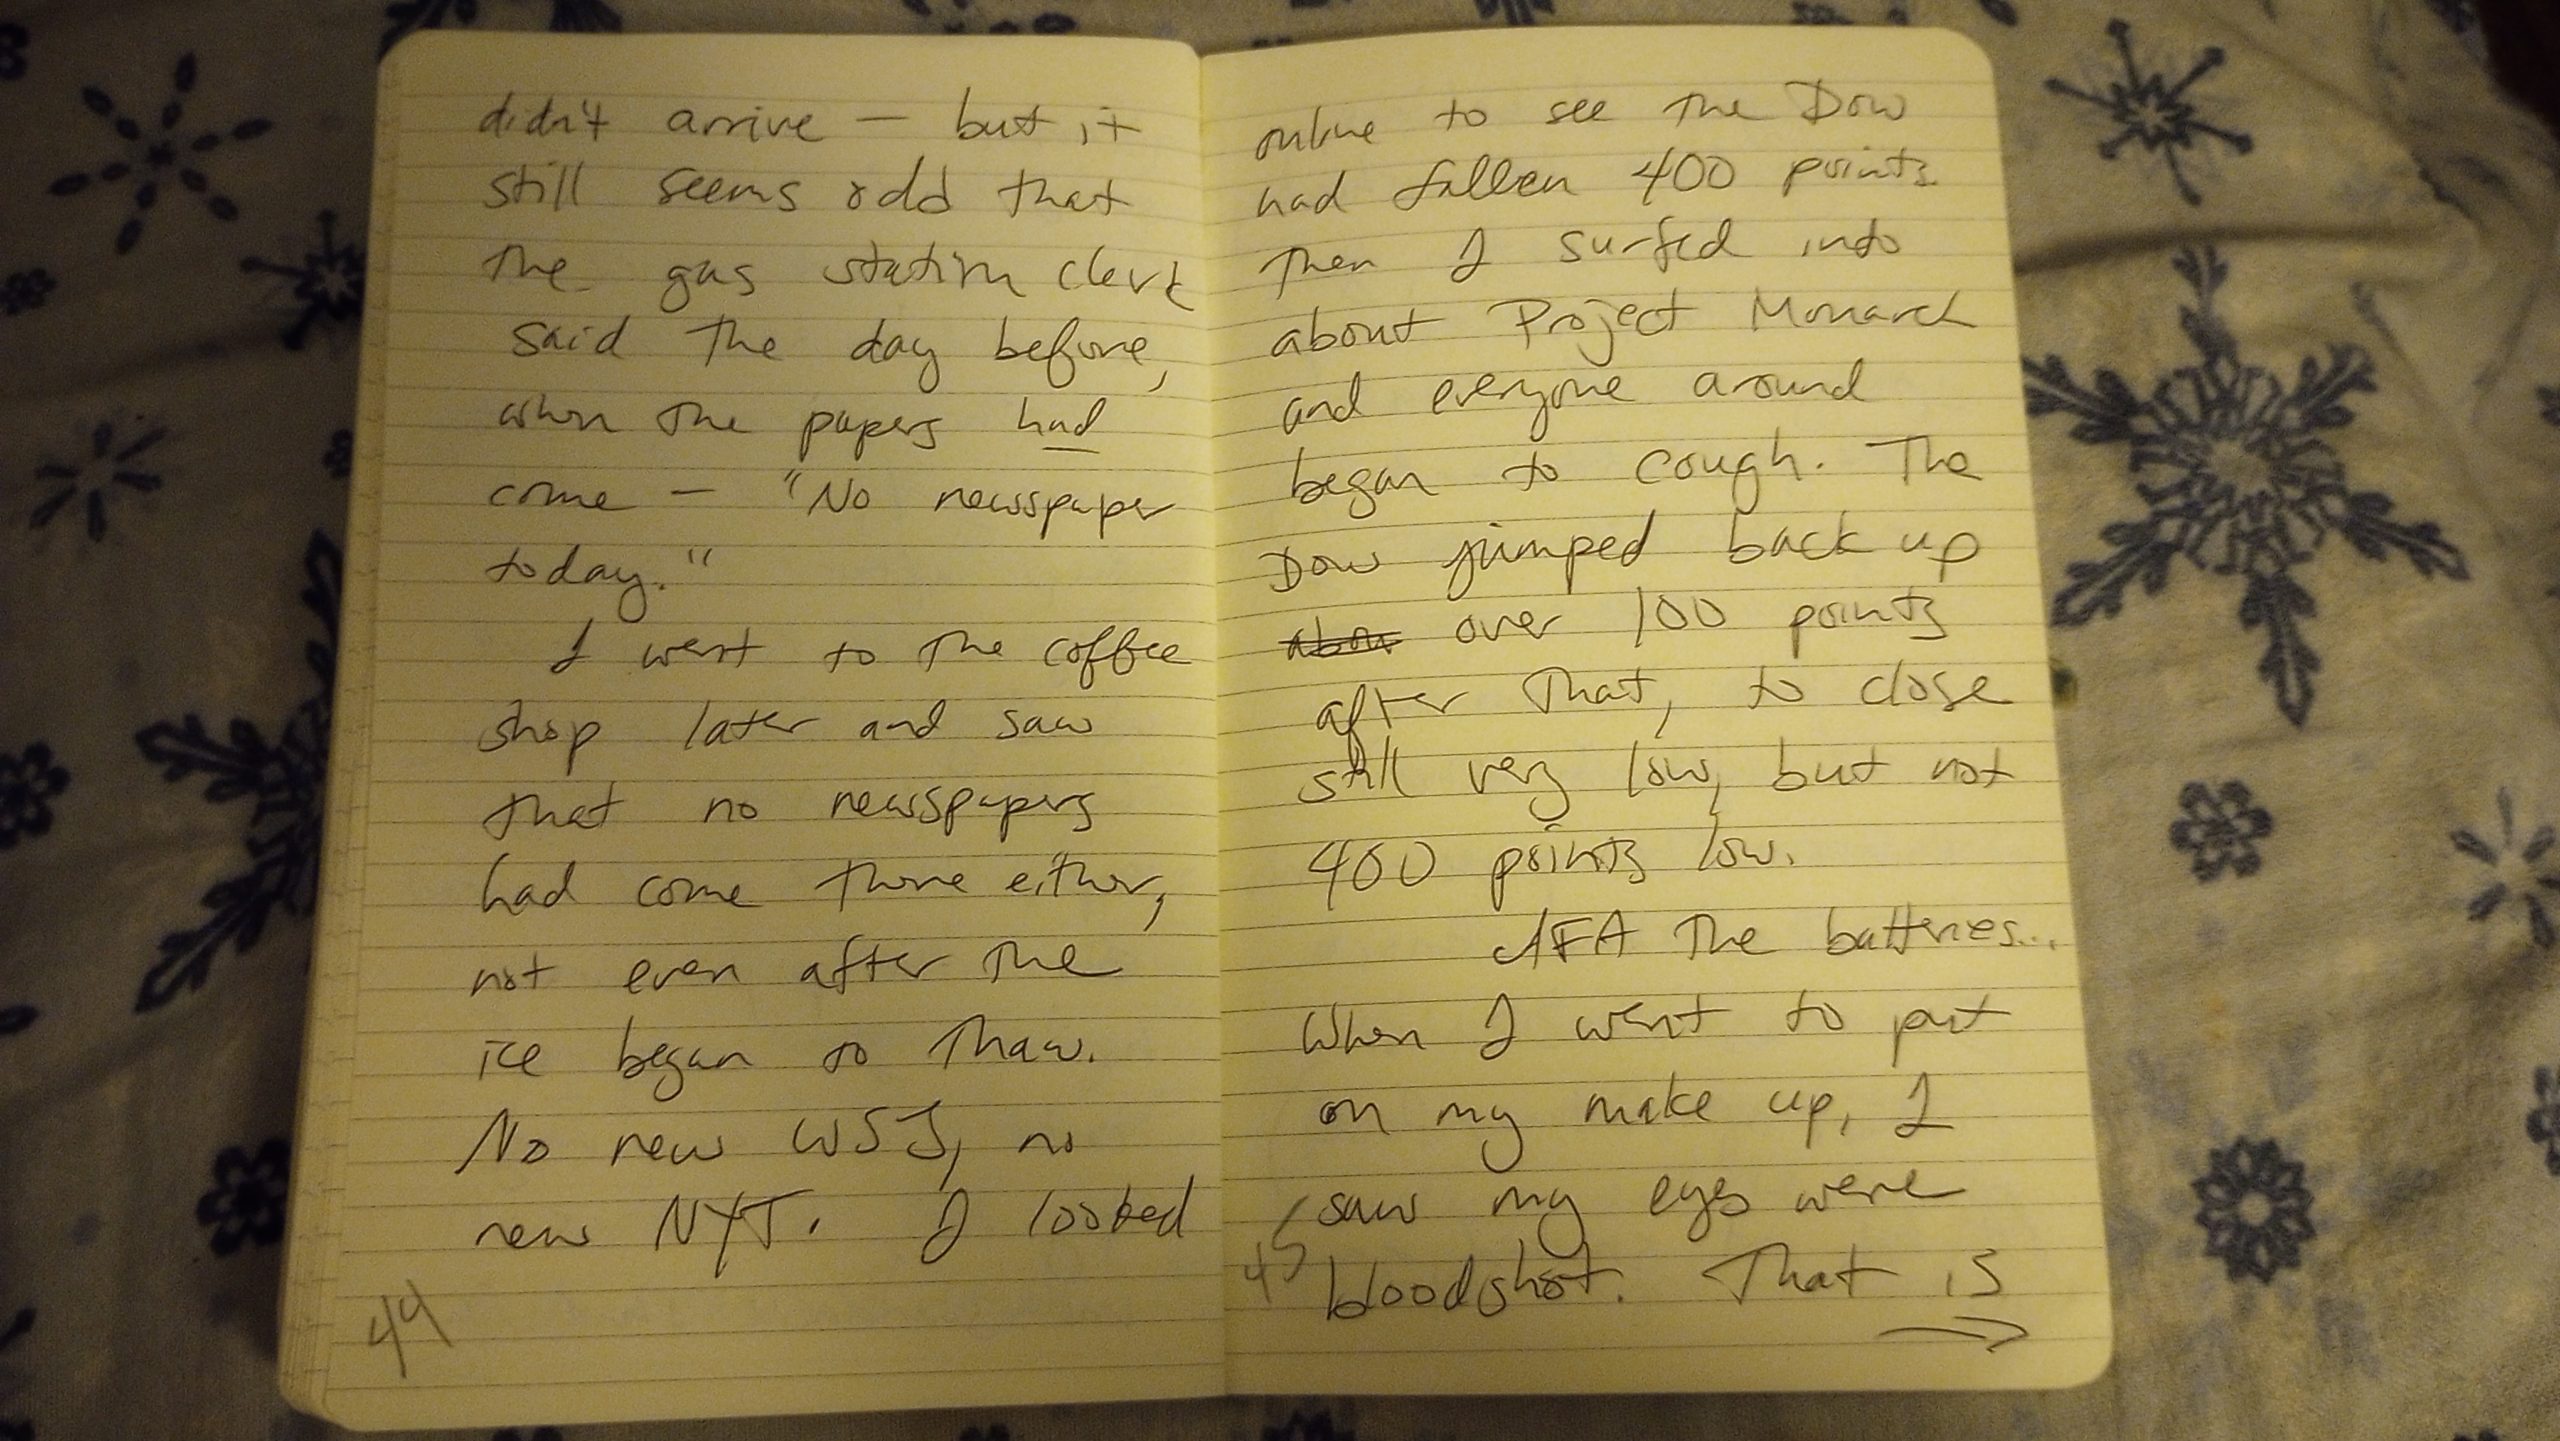 didn't arrive — but it
still seems odd that
the gas station clerk
said the day before,
when the papers had
come — "No newspaper
today."
I went to the coffee
shop later and saw
that no newspapers
had come there either,
not even after the
ice began to thaw.
No new WSJ, no
new NYT. I looked
44
online to see the Dow
had fallen 400 points.
Then I surfed into
about Project Monarch
and everyone around
began to cough. The
Dow jumped back up
over 100 points
after that, to close
still very low, but not
400 points low.
AFA the batteries...
When I went to put
on my make up, I
saw my eyes were
bloodshot. That is
45